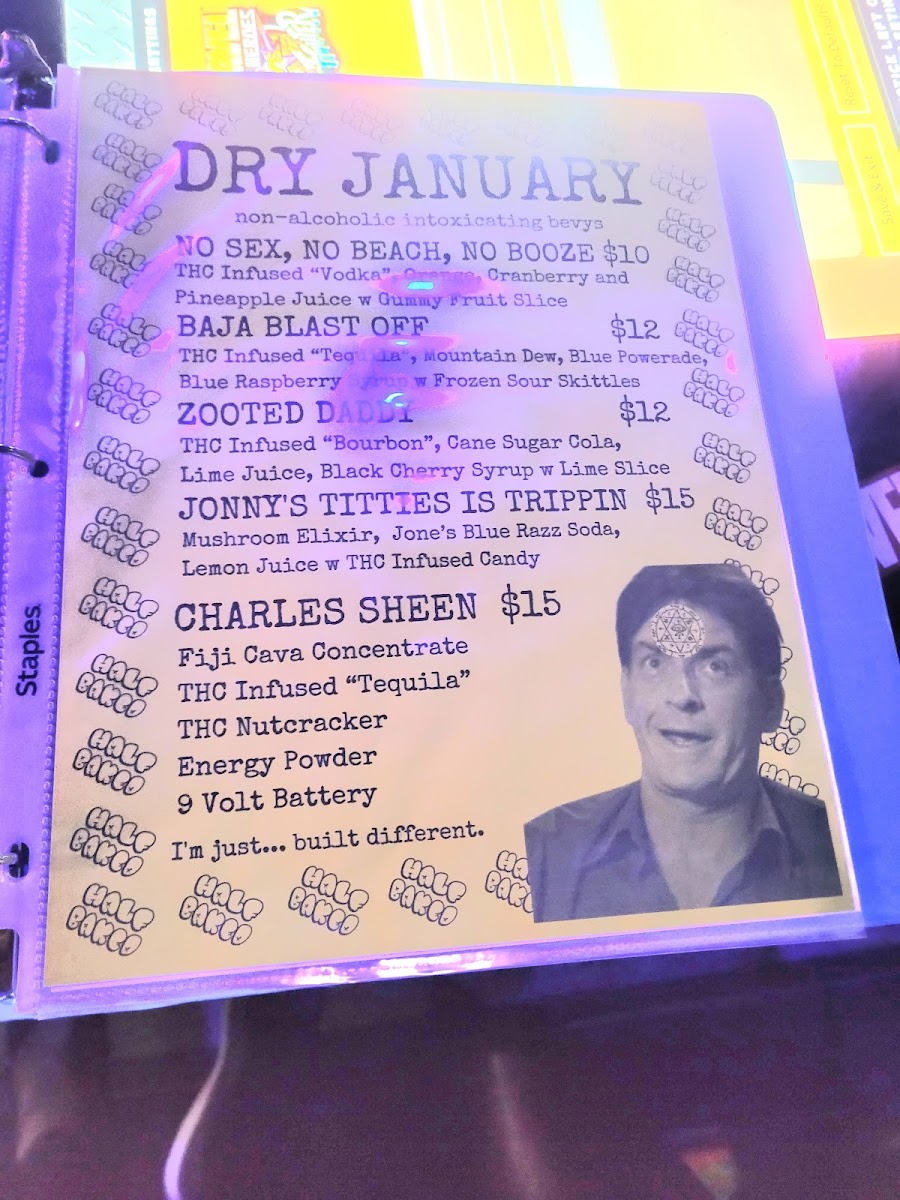 DRY JANUARY
non-alcoholic intoxicating bevys
NO SEX, NO BEACH, NO BOOZE $10
THC Infused “Vodka”, Orange, Cranberry and
Pineapple Juice w Gummy Fruit Slice
BAJA BLAST OFF $12
THC Infused “Tequila”, Mountain Dew, Blue Powerade,
Blue Raspberry Syrup w Frozen Sour Skittles
ZOOTED DADDY $12
THC Infused “Bourbon”, Cane Sugar Cola,
Lime Juice, Black Cherry Syrup w Lime Slice
JONNY'S TITTIES IS TRIPPIN $15
Mushroom Elixir, Jone’s Blue Razz Soda,
Lemon Juice w THC Infused Candy
CHARLES SHEEN $15
Fiji Cava Concentrate
THC Infused “Tequila”
THC Nutcracker
Energy Powder
9 Volt Battery
I'm just... built different.
HALF
BAKED
Staples
Reset To Defaults
Save & Exit